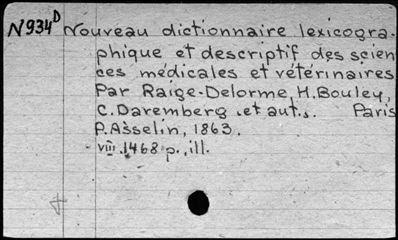 N934D Nouveau dictionnaire lexicogra-
phique et descriptif des scien
ces médicales et vétérinaires
Par Raige-Delorme, H. Bouley,
C. Daremberg et aut.. Paris
P. Asselin, 1863.
VIII. 1468 p., ill.